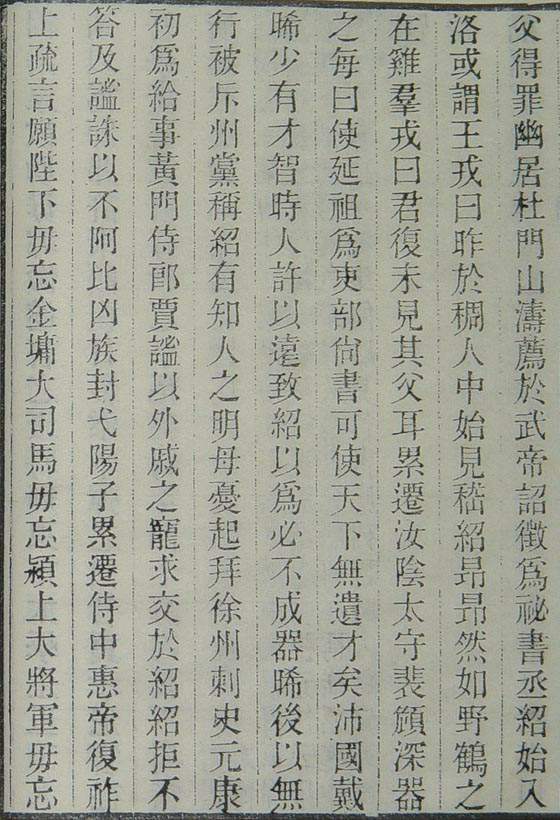 父得罪幽居杜門山濤薦於武帝詔徵爲祕書丞紹始入
洛或謂王戎曰昨於稠人中始見嵇紹昂昂然如野鶴之
在雞羣戎曰君復未見其父耳累遷汝陰太守裴頠深器
之每曰使延祖爲吏部尙書可使天下無遺才矣沛國戴
晞少有才智時人許以遠致紹以爲必不成器晞後以無
行被斥州黨稱紹有知人之明母憂起拜徐州刺史元康
初爲給事黃門侍郎賈謐以外戚之寵求交於紹紹拒不
答及謐誅以不阿比凶族封弋陽子累遷侍中惠帝復祚
上疏言願陛下毋忘金墉大司馬毋忘潁上大將軍毋忘